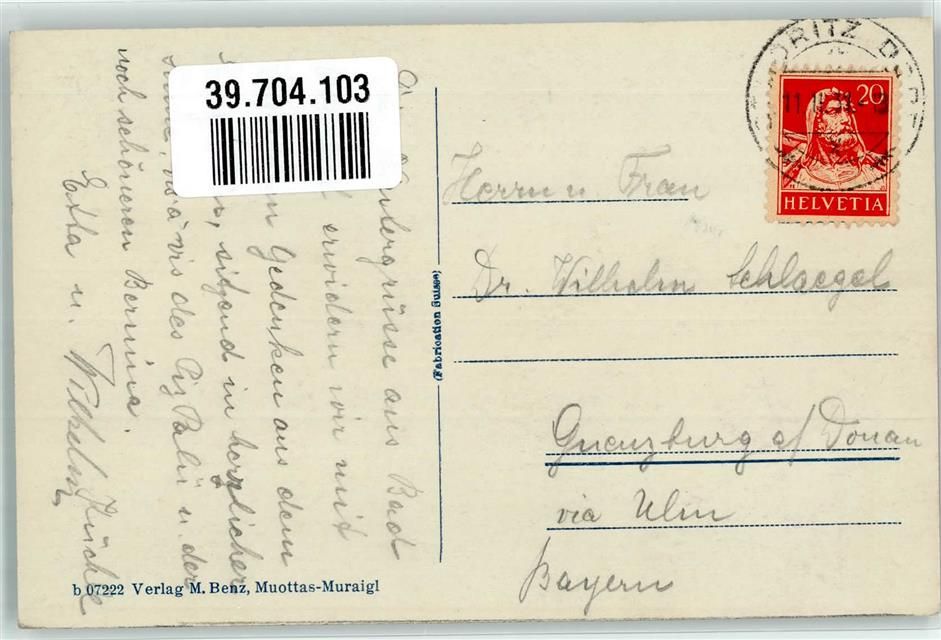 39.704.103
Wintergrüsse aus Bad
erwidern wir mit
Gedenken aus dem
sitzend in herzlicher
Sonne, vis à vis des Piz Palü u. der
noch schöneren Bernina.
Etta u. Wilhelm
(Fabrication Suisse)
b 07222 Verlag M. Benz, Muottas-Muraigl
MORITZ DORF
20
HELVETIA
Herrn u Frau
Dr. Wilhelm Schlaegel
Guenzburg a/ Donau
via Ulm
Bayern